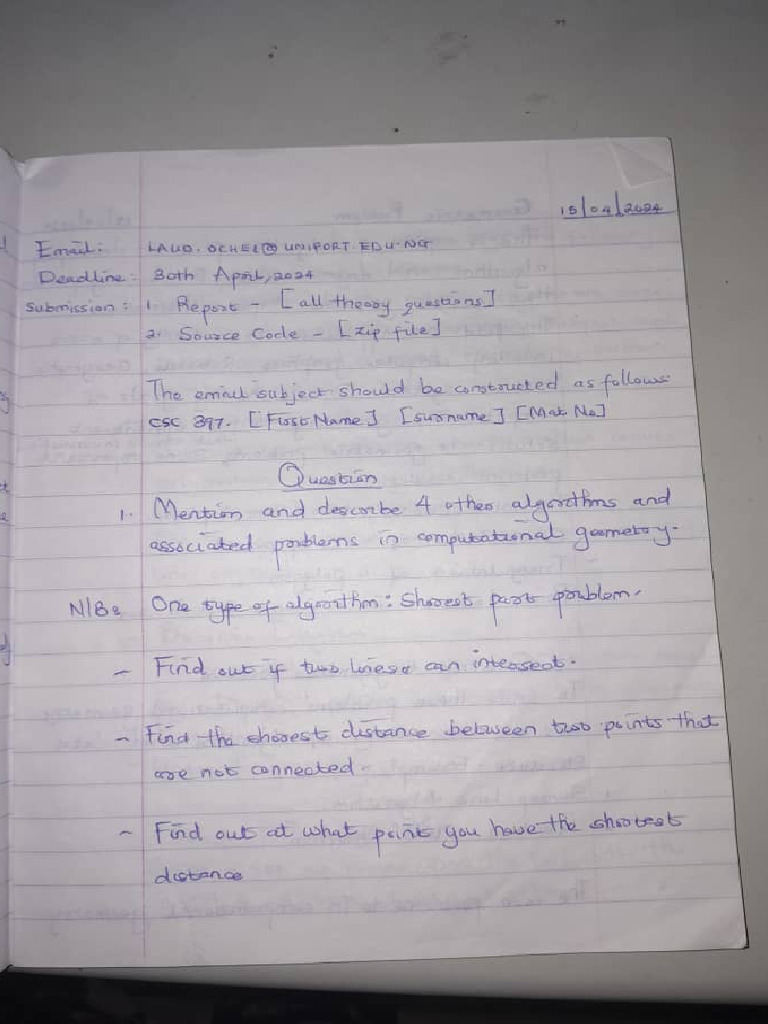 15/04/2024
Email: LAUD.OCHEI@UNIPORT.EDU.NG
Deadline: 30th April, 2024
Submission: 1. Report - [all theory questions]
2. Source Code - [zip file]
The email subject should be constructed as follows:
CSC 397. [First Name] [Surname] [Mat No]
Question
1. Mention and describe 4 other algorithms and
associated problems in computational geometry.
N/B: One type of algorithm: Shorest part problem.
- Find out if two lines can intersect.
- Find the shorest distance between two points that
are not connected.
- Find out at what point you have the shortest
distance